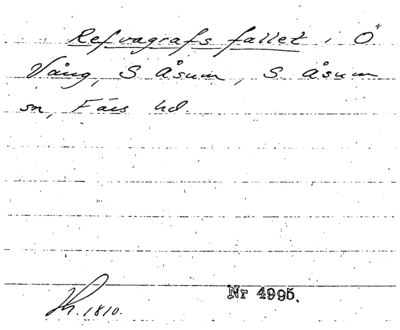 Refvagrafs fallet i Ö
Vång, S Åsum, S. Åsum
sn, Färs hd.
Nr 4995.
Kh. 1810.